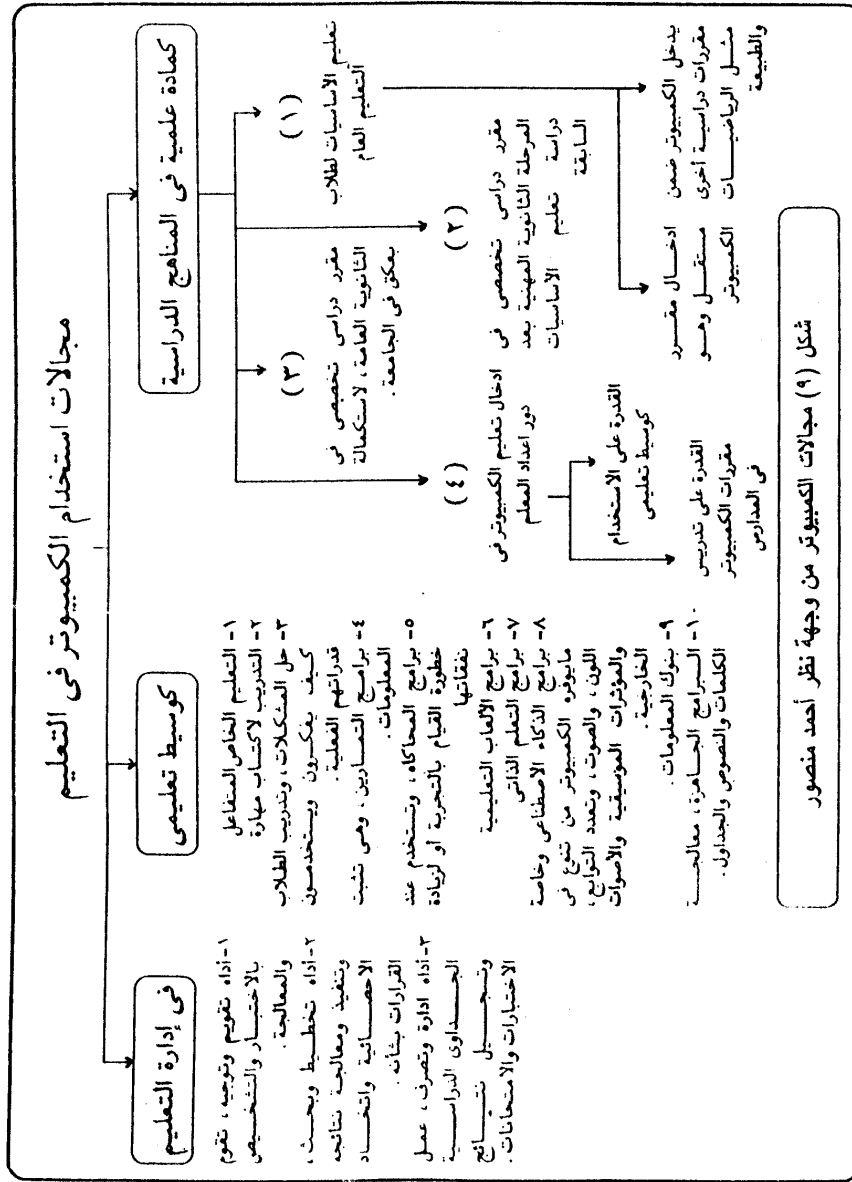 مجالات استخدام الكمبيوتر فى التعليم
كمادة علمية فى المناهج الدراسية
(١)
تعليم الاساسيات لطلاب
التعليم العام
يدخل الكمبيوتر ضمن
مقررات دراسية أخرى
مثل الرياضيات
والطبيعة
ادخال مقرر
مستقل وهو
الكمبيوتر
(٢)
مقرر دراسى تخصصى فى
المرحلة الثانوية المهنية بعد
دراسة تعليم الاساسيات
السابقة
(٣)
مقرر دراسى تخصصى فى
الثانوية العامة، لاستكمالة
بعكق فى الجامعة.
(٤)
ادخال تعليم الكمبيوتر فى
دور اعداد المعلم
القدرة على الاستخدام
كوسيط تعليمى
القدرة على تدريس
مقررات الكمبيوتر
فى المدارس
كوسيط تعليمى
١- التعليم الخاص المتفاعل
٢- التدريب لاكتساب مهارة
٣- حل المشكلات، وتدريب الطلاب
كيف يفكرون ويستخدمون
قدراتهم العقلية.
٤- برامج التمارين، وهى تثبت
المعلومات.
٥- برامج المحاكاه، وتستخدم عند
خطورة القيام بالتجربة أو لزيادة
نفقاتها
٦- برامج الألعاب التعليمية
٧- برامج التعلم الذاتى
٨- برامج الذكاء الاصطناعى وخاصة
مايوفره الكمبيوتر من تنوع فى
اللون، والصوت، وتعدد التوابع،
والمؤثرات الموسيقية والأصوات
الخارجية.
٩- بنوك المعلومات.
١٠- البرامج الجاهزة، معالجة
الكلمات والنصوص والجداول.
فى إدارة التعليم
١- أداه تقويم وتوجيه، تقوم
بالاختبار والتشخيص
والمعالجة.
٢- أداه تخطيط وبحث،
وتنفيذ ومعالجة نتائجه
الاحصائية واتخاد
القرارات بشأنه.
٣- أداه ادارة وتصرف، عمل
الجداوى الدراسية
وتجيل نتائج
الاختبارات والامتحانات.
شكل (٩) مجالات الكمبيوتر من وجهة نظر أحمد منصور